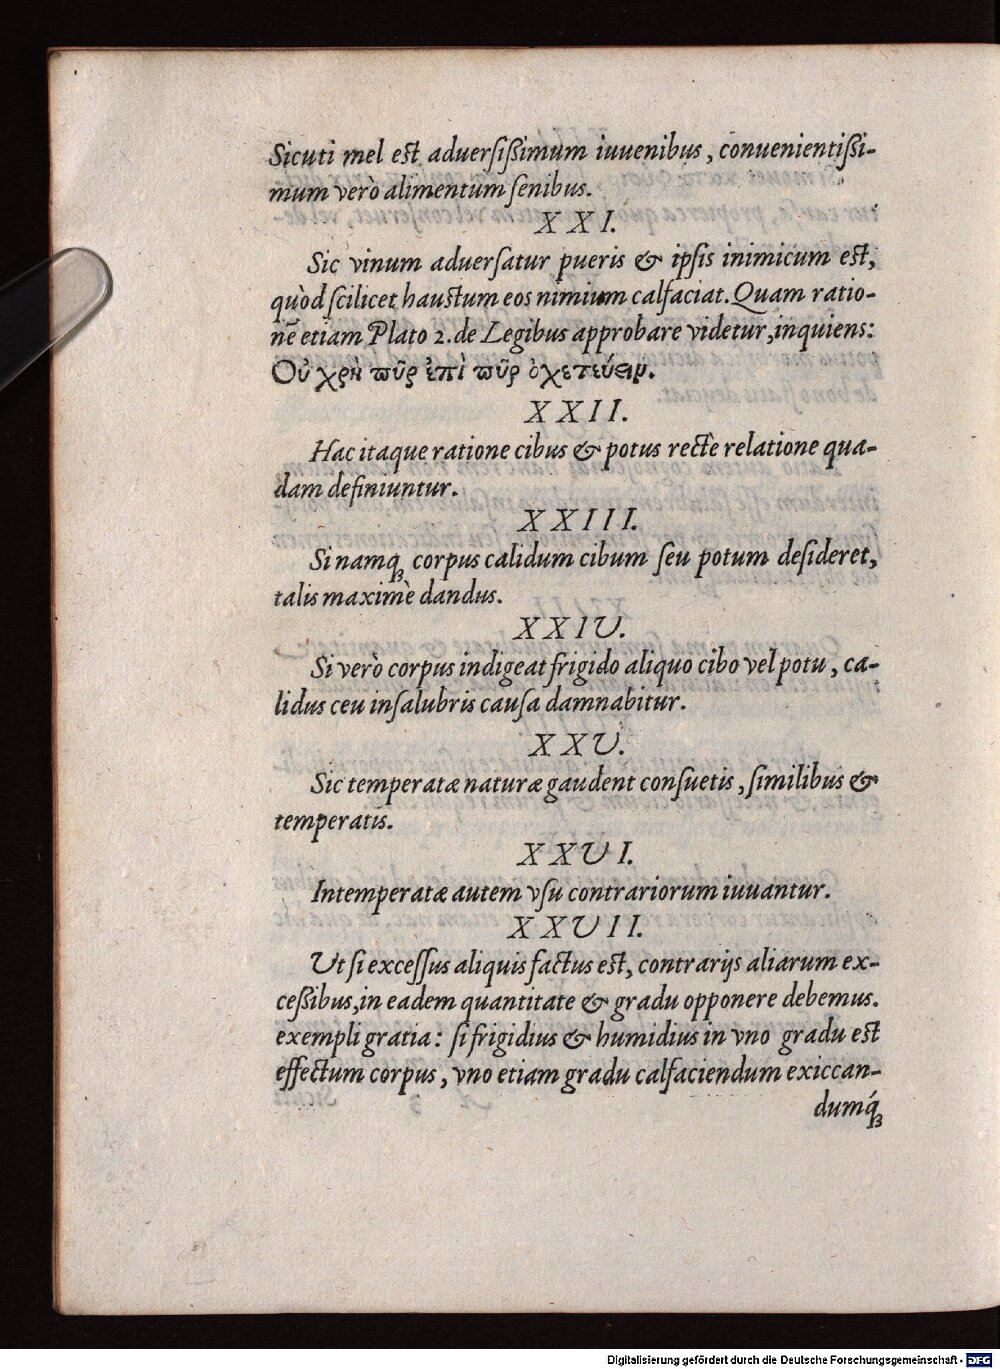 Sicuti mel est aduersißimum iuuenibus, conuenientißi-
mum verò alimentum senibus.
XXI.
Sic vinum aduersatur pueris & ipsis inimicum est,
quòd scilicet haustum eos nimium calfaciat. Quam ratio-
nē etiam Plato 2. de Legibus approbare videtur, inquiens:
Οὐ χρὴ πῦρ ἐπὶ πῦρ ὀχετεύειν.
XXII.
Hac itaque ratione cibus & potus rectè relatione qua-
dam definiuntur.
XXIII.
Si namq; corpus calidum cibum seu potum desideret,
talis maximè dandus.
XXIV.
Si verò corpus indigeat frigido aliquo cibo vel potu, ca-
lidus ceu insalubris causa damnabitur.
XXV.
Sic temperatæ naturæ gaudent consuetis, similibus &
temperatis.
XXVI.
Intemperatæ autem vsu contrariorum iuuantur.
XXVII.
Ut si excessus aliquis factus est, contrarijs aliarum ex-
ceßibus, in eadem quantitate & gradu opponere debemus.
exempli gratia: si frigidius & humidius in vno gradu est
effectum corpus, vno etiam gradu calfaciendum exiccan-
dumq́;
Digitalisierung gefördert durch die Deutsche Forschungsgemeinschaft - DFG